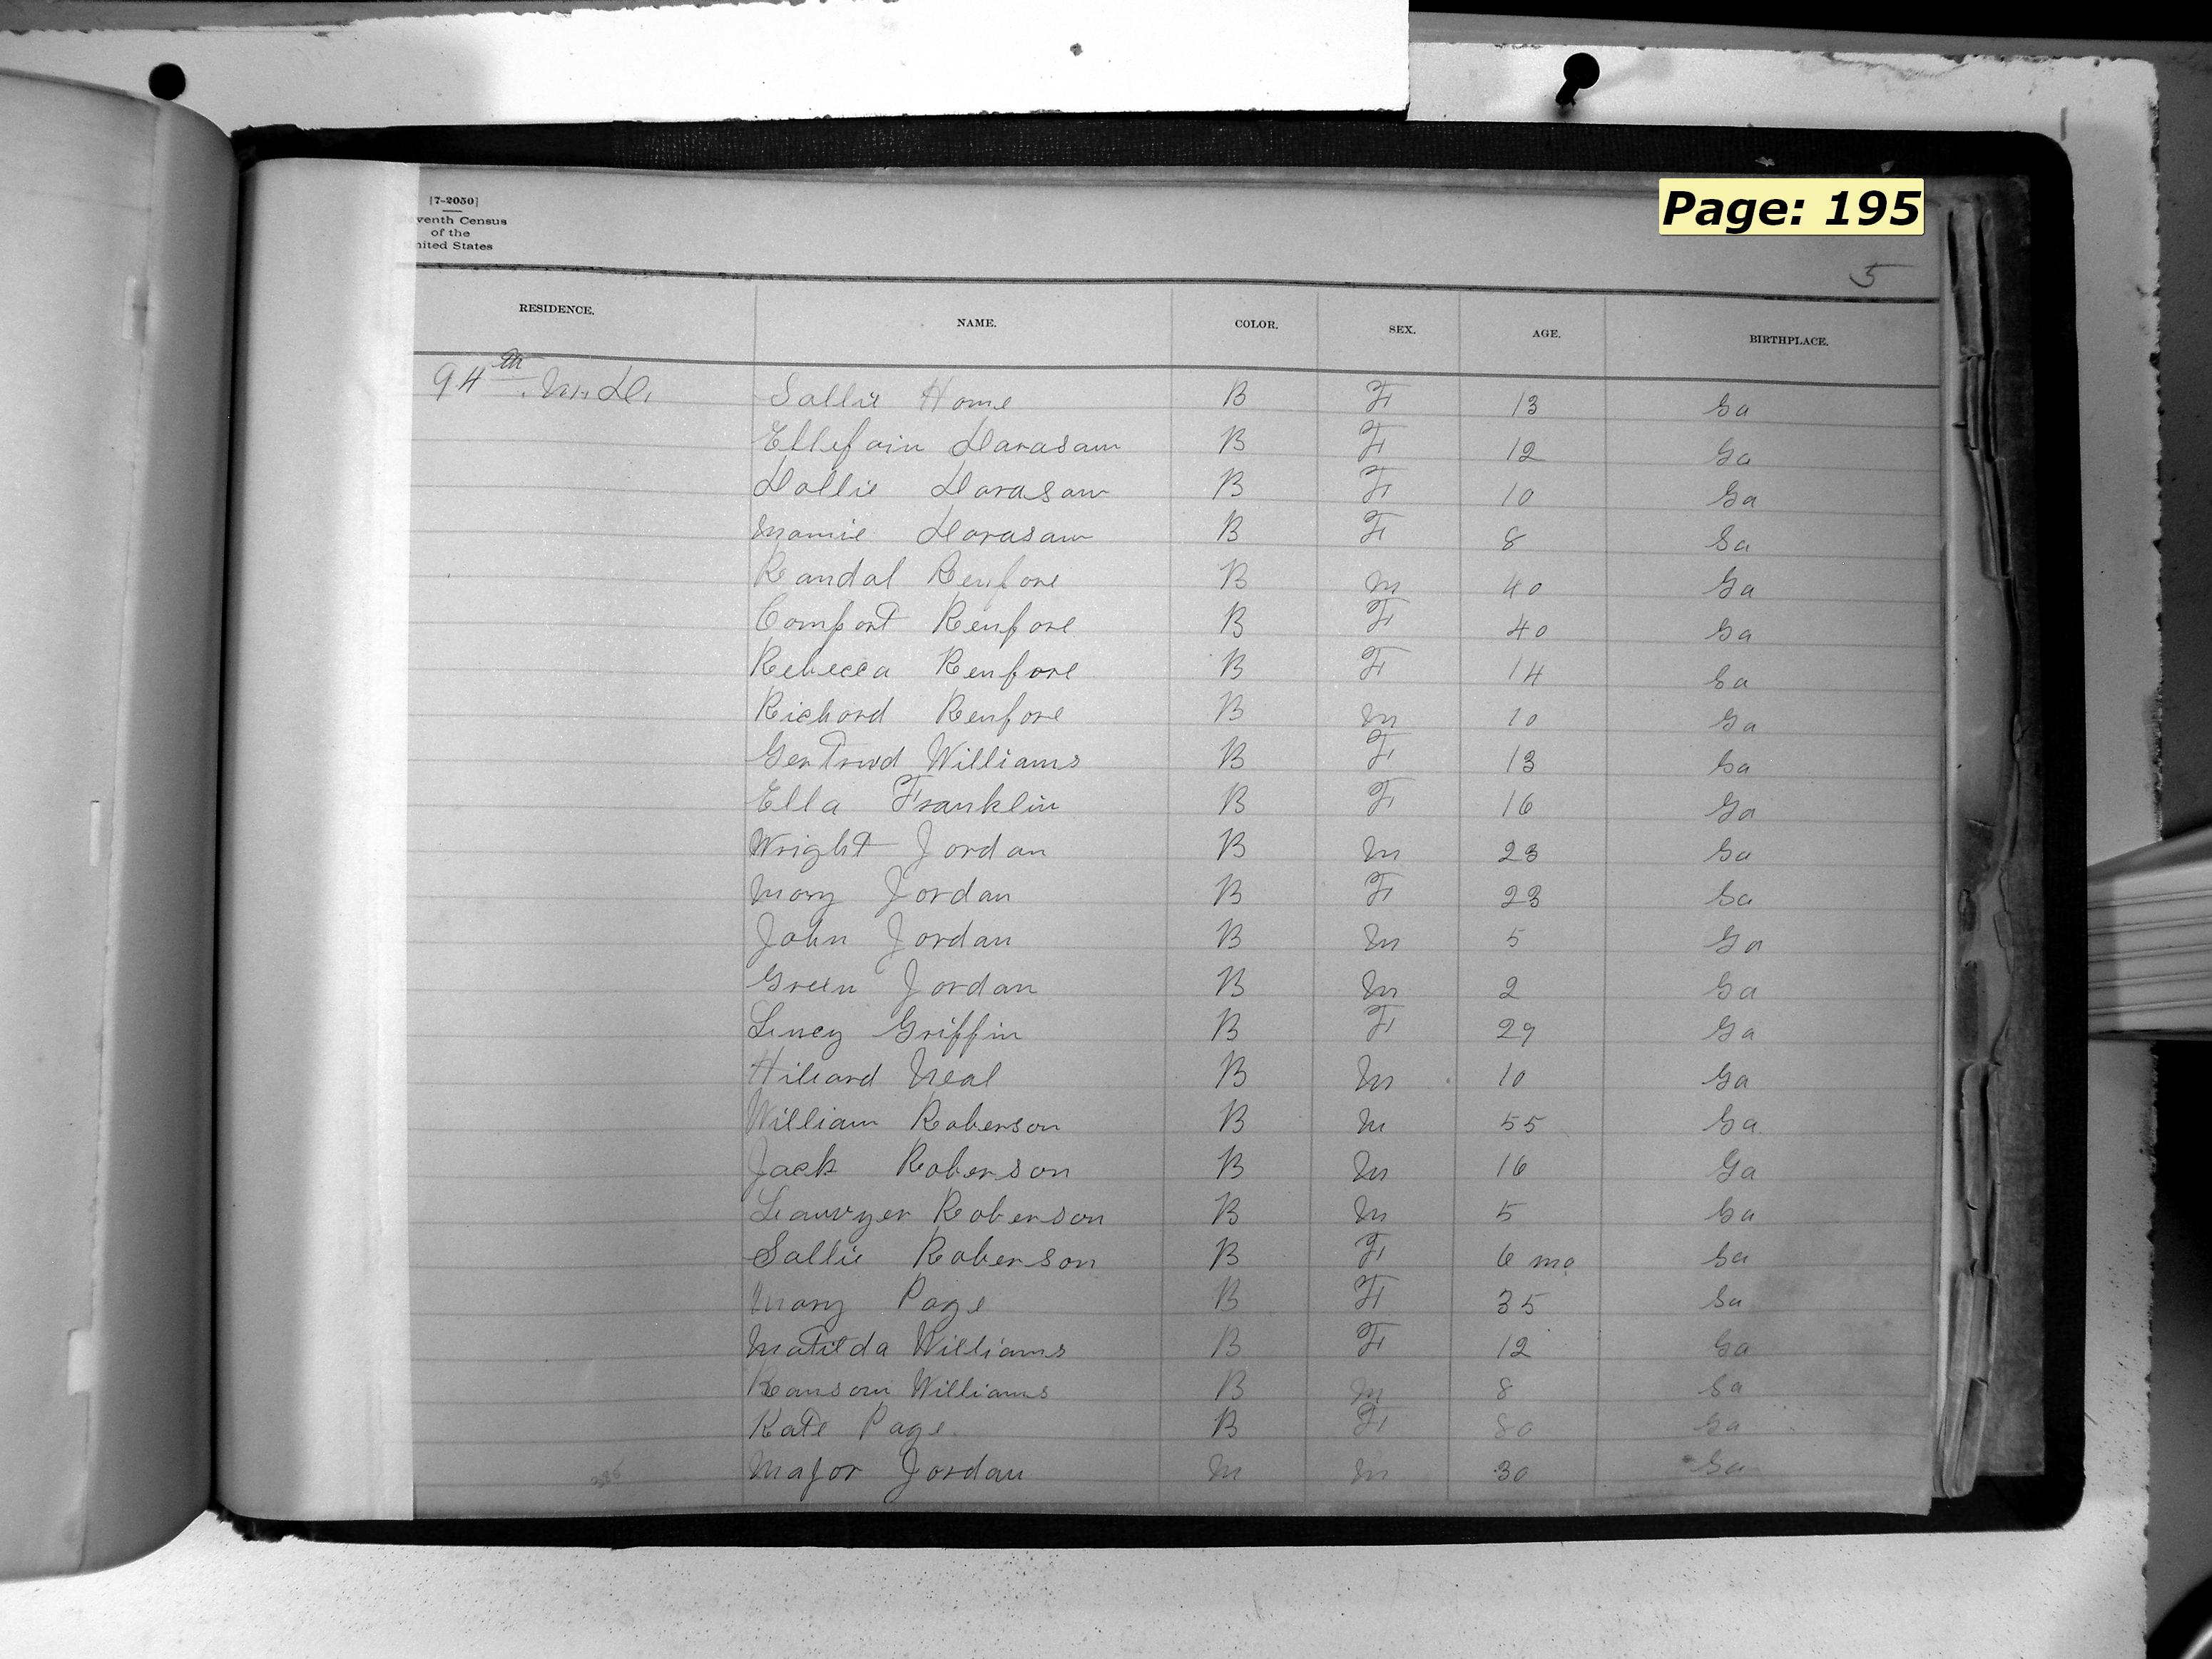 Page: 195
[7-2050]
venth Census
of the
nited States
5
RESIDENCE. NAME. COLOR. SEX. AGE. BIRTHPLACE.
94th M. D. Sallie Horne B F 13 Ga
Ellefain Darasaw B F 12 Ga
Dollie Darasaw B F 10 Ga
Mamie Darasaw B F 8 Ga
Randal Renfore B M 40 Ga
Comfort Renfore B F 40 Ga
Rebecca Renfore B F 14 Ga
Richard Renfore B M 10 Ga
Gertrwd Williams B F 13 Ga
Ella Franklin B F 16 Ga
Wright Jordan B M 23 Ga
Mary Jordan B F 23 Ga
John Jordan B M 5 Ga
Green Jordan B M 2 Ga
Lucy Griffin B F 29 Ga
Hiliard Neal B M 10 Ga
William Roberson B M 55 Ga
Jack Roberson B M 16 Ga
Lawyer Roberson B M 5 Ga
Sallie Roberson B F 6 mo Ga
Mary Page B F 35 Ga
Matilda Williams B F 12 Ga
Ransom Williams B M 8 Ga
Kate Page B F 80 Ga
Major Jordan M M 30 Ga